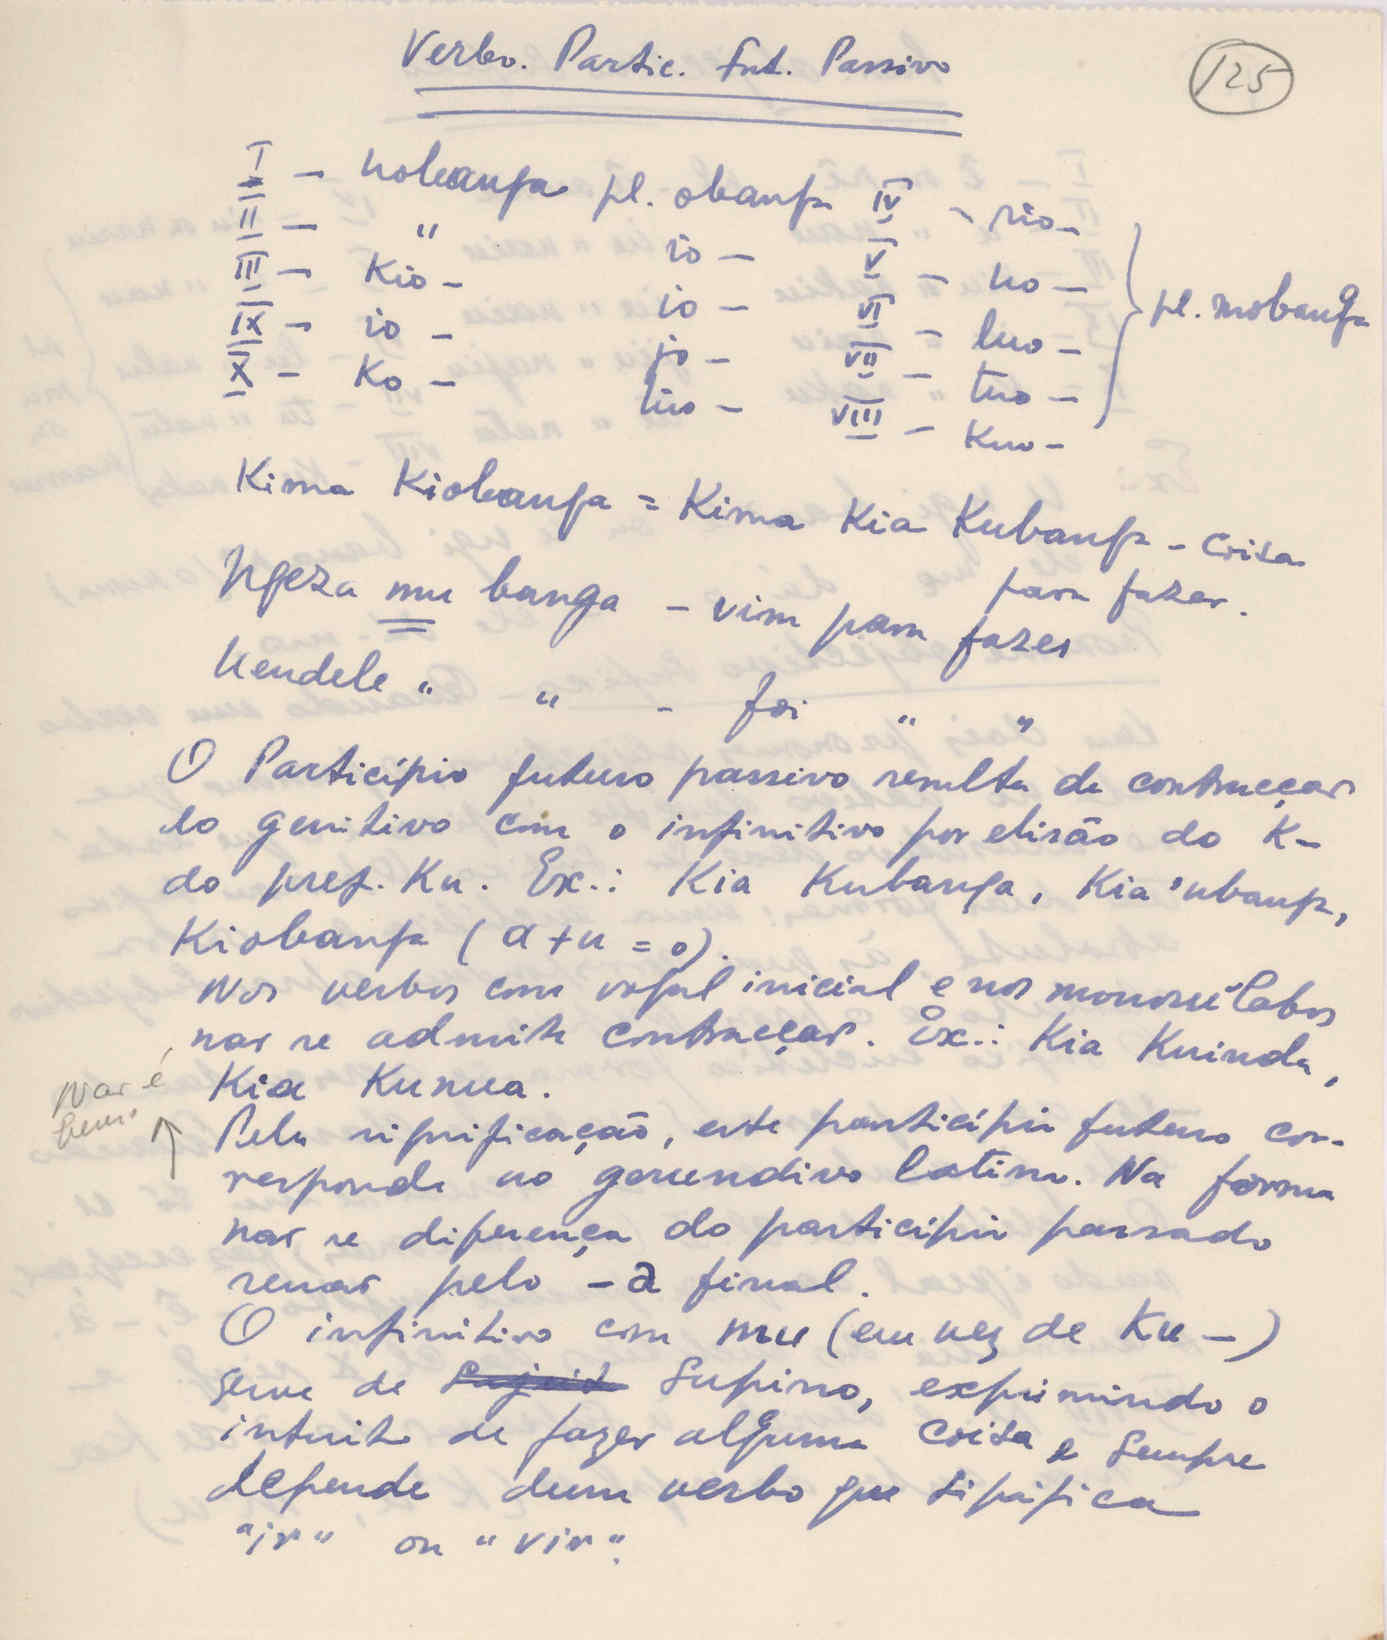 Verbo. Partic. Fut. Passivo
125
I – uobanga pl. obanga IV – rio–
II – " io – V – uo –
III – Kio – io – VI – luo –
IX – io – jo – VII – tuo –
X – Ko – luo – VIII – Kuo –
pl. mobanga
Kima Kiobanga = Kima Kia Kubanga – Coisa
para fazer.
Ngeza mu banga – vim para fazer
Uendele " " – foi " "
O Particípio futuro passivo resulta da contracção
do genitivo com o infinitivo por elisão do K–
do pref. Ku. Ex.: Kia Kubanga, Kia 'ubanga,
Kiobanga (a + u = o).
Nos verbos com vogal inicial e nos monossílabos
não se admite contracção. Ex.: Kia Kuinda,
Kia Kunua.
Não é
bem
Pela significação, este particípio futuro cor-
responde ao gerundivo latino. Na forma
não se diferença do particípio passado
senão pelo –a final.
O infinitivo com mu (em vez de Ku –)
serve de Supino, exprimindo o
intuito de fazer alguma coisa e sempre
depende dum verbo que significa
"ir" ou "vir".